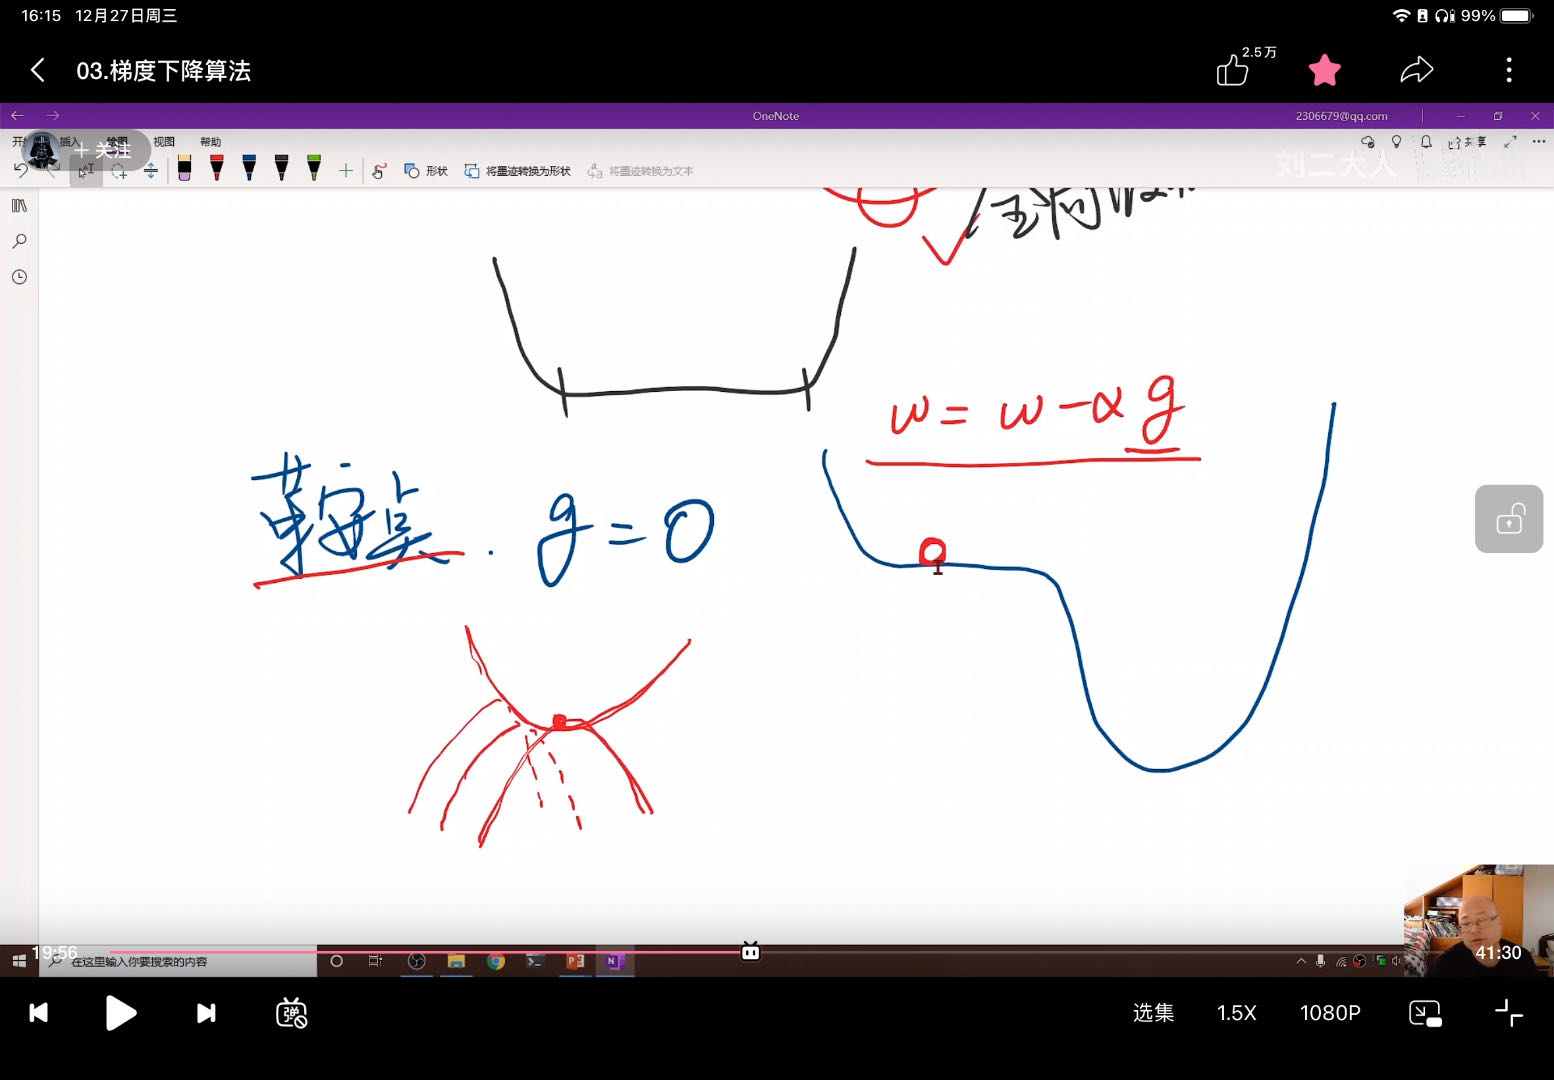 16:15 12月27日周三
99%
03.梯度下降算法
2.5万
OneNote
2306679@qq.com
插入 绘图 视图 帮助
共享
+ 关注
形状
将墨迹转换为形状
将墨迹转换为文本
刘二大人 bilibili
w = w - α g
鞍点. g = 0
19:56
在这里输入你要搜索的内容
41:30
弹
选集
1.5X
1080P